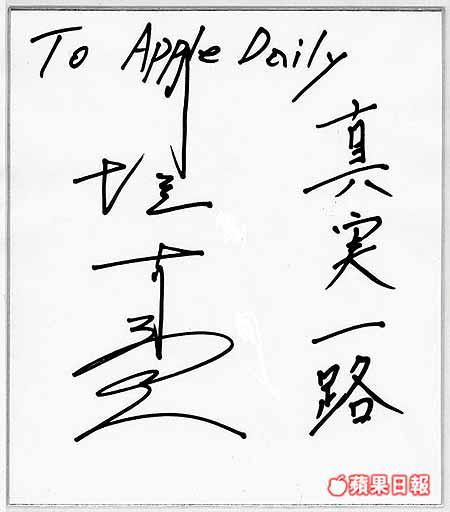 To Apple Daily
真実一路
蘋果日報